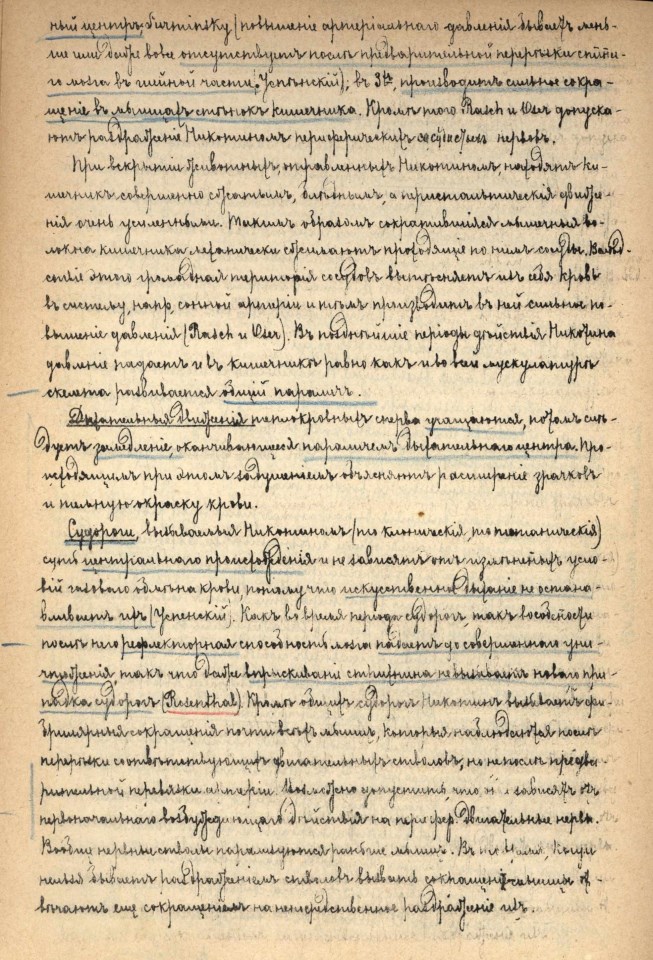 ный центръ Surminsky (повышеніе артеріальнаго давленія бываетъ мень-
ше или даже вовсе отсутствуетъ послѣ предварительной перерѣзки спин-
го мозга въ шейной части, Успенскій); въ 3хъ, производитъ сильное сокра-
щеніе въ мышцахъ стѣнокъ кишечника. Кромѣ того Basch и Oser допуска-
ютъ раздраженіе Никотиномъ периферическихъ сосудистыхъ нервовъ.
При вскрытіи животныхъ, отравленныхъ Никотиномъ, находятъ ки-
шечникъ совершенно сжатымъ, блѣднымъ, а перистальтическія движе-
нія очень усиленными. Такимъ образомъ сократившіяся мышечныя во-
локна кишечника механически сжимаютъ проходящіе по нимъ сосуды. Вслѣд-
ствіе этого громадная територія сосудовъ вытѣсняетъ изъ себя кровь
въ систему, напр, сонной артеріи и тѣмъ производитъ въ ней сильное по-
вышеніе давленія (Basch и Oser). Въ позднѣйшіе періоды дѣйствія Никотина
давленіе падаетъ и въ кишечникѣ равно какъ и во всей мускулатурѣ
скелета развивается общій параличъ.
Дыхательныя движенія теплокровныхъ сперва учащаются, потомъ слѣ-
дуетъ замедленіе, оканчивающееся параличемъ дыхательнаго центра. Про-
исходящимъ при этомъ задушеніемъ объясняютъ расширеніе зрачковъ
и темную окраску крови.
Судороги, вызываемыя Никотиномъ (то клоническія, то тетаническія)
суть центральнаго происхожденія и не зависятъ отъ измѣненныхъ усло-
вій газоваго обмѣна крови потому что искусственное дыханіе не остана-
вливаетъ ихъ (Успенскій). Какъ во время періода судорогъ такъ въ особности
послѣ него рефлекторная способность мозга падаетъ до совершеннаго уни-
чтоженія такъ что даже впрыскиваніе стрихнина не вызываетъ новаго при-
падка судорогъ (Rosenthal). Кромѣ общихъ судорогъ Никотинъ вызываетъ фи-
бриллярныя сокращенія почти всѣхъ мышцъ, которыя наблюдаются послѣ
перерѣзки соотвѣтствующихъ двигательныхъ стволовъ, но не послѣ предва-
рительной перевязки артеріи. Возможно допустить, что они зависятъ отъ
первоначальнаго возбуждающаго дѣйствія на перифер. двигательные нервы.
Вообще нервные стволы парализуются раньше мышцъ. Въ то время, когда
нельзя бываетъ раздраженіемъ стволовъ вызвать сокращеніе мышцъ от-
вѣчаютъ еще сокращеніемъ на непосредственное раздраженіе ихъ.